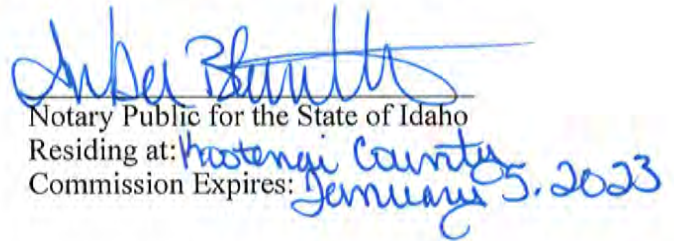 Notary Public for the State of Idaho
Residing at: Kootenai County
Commission Expires: January 5, 2023